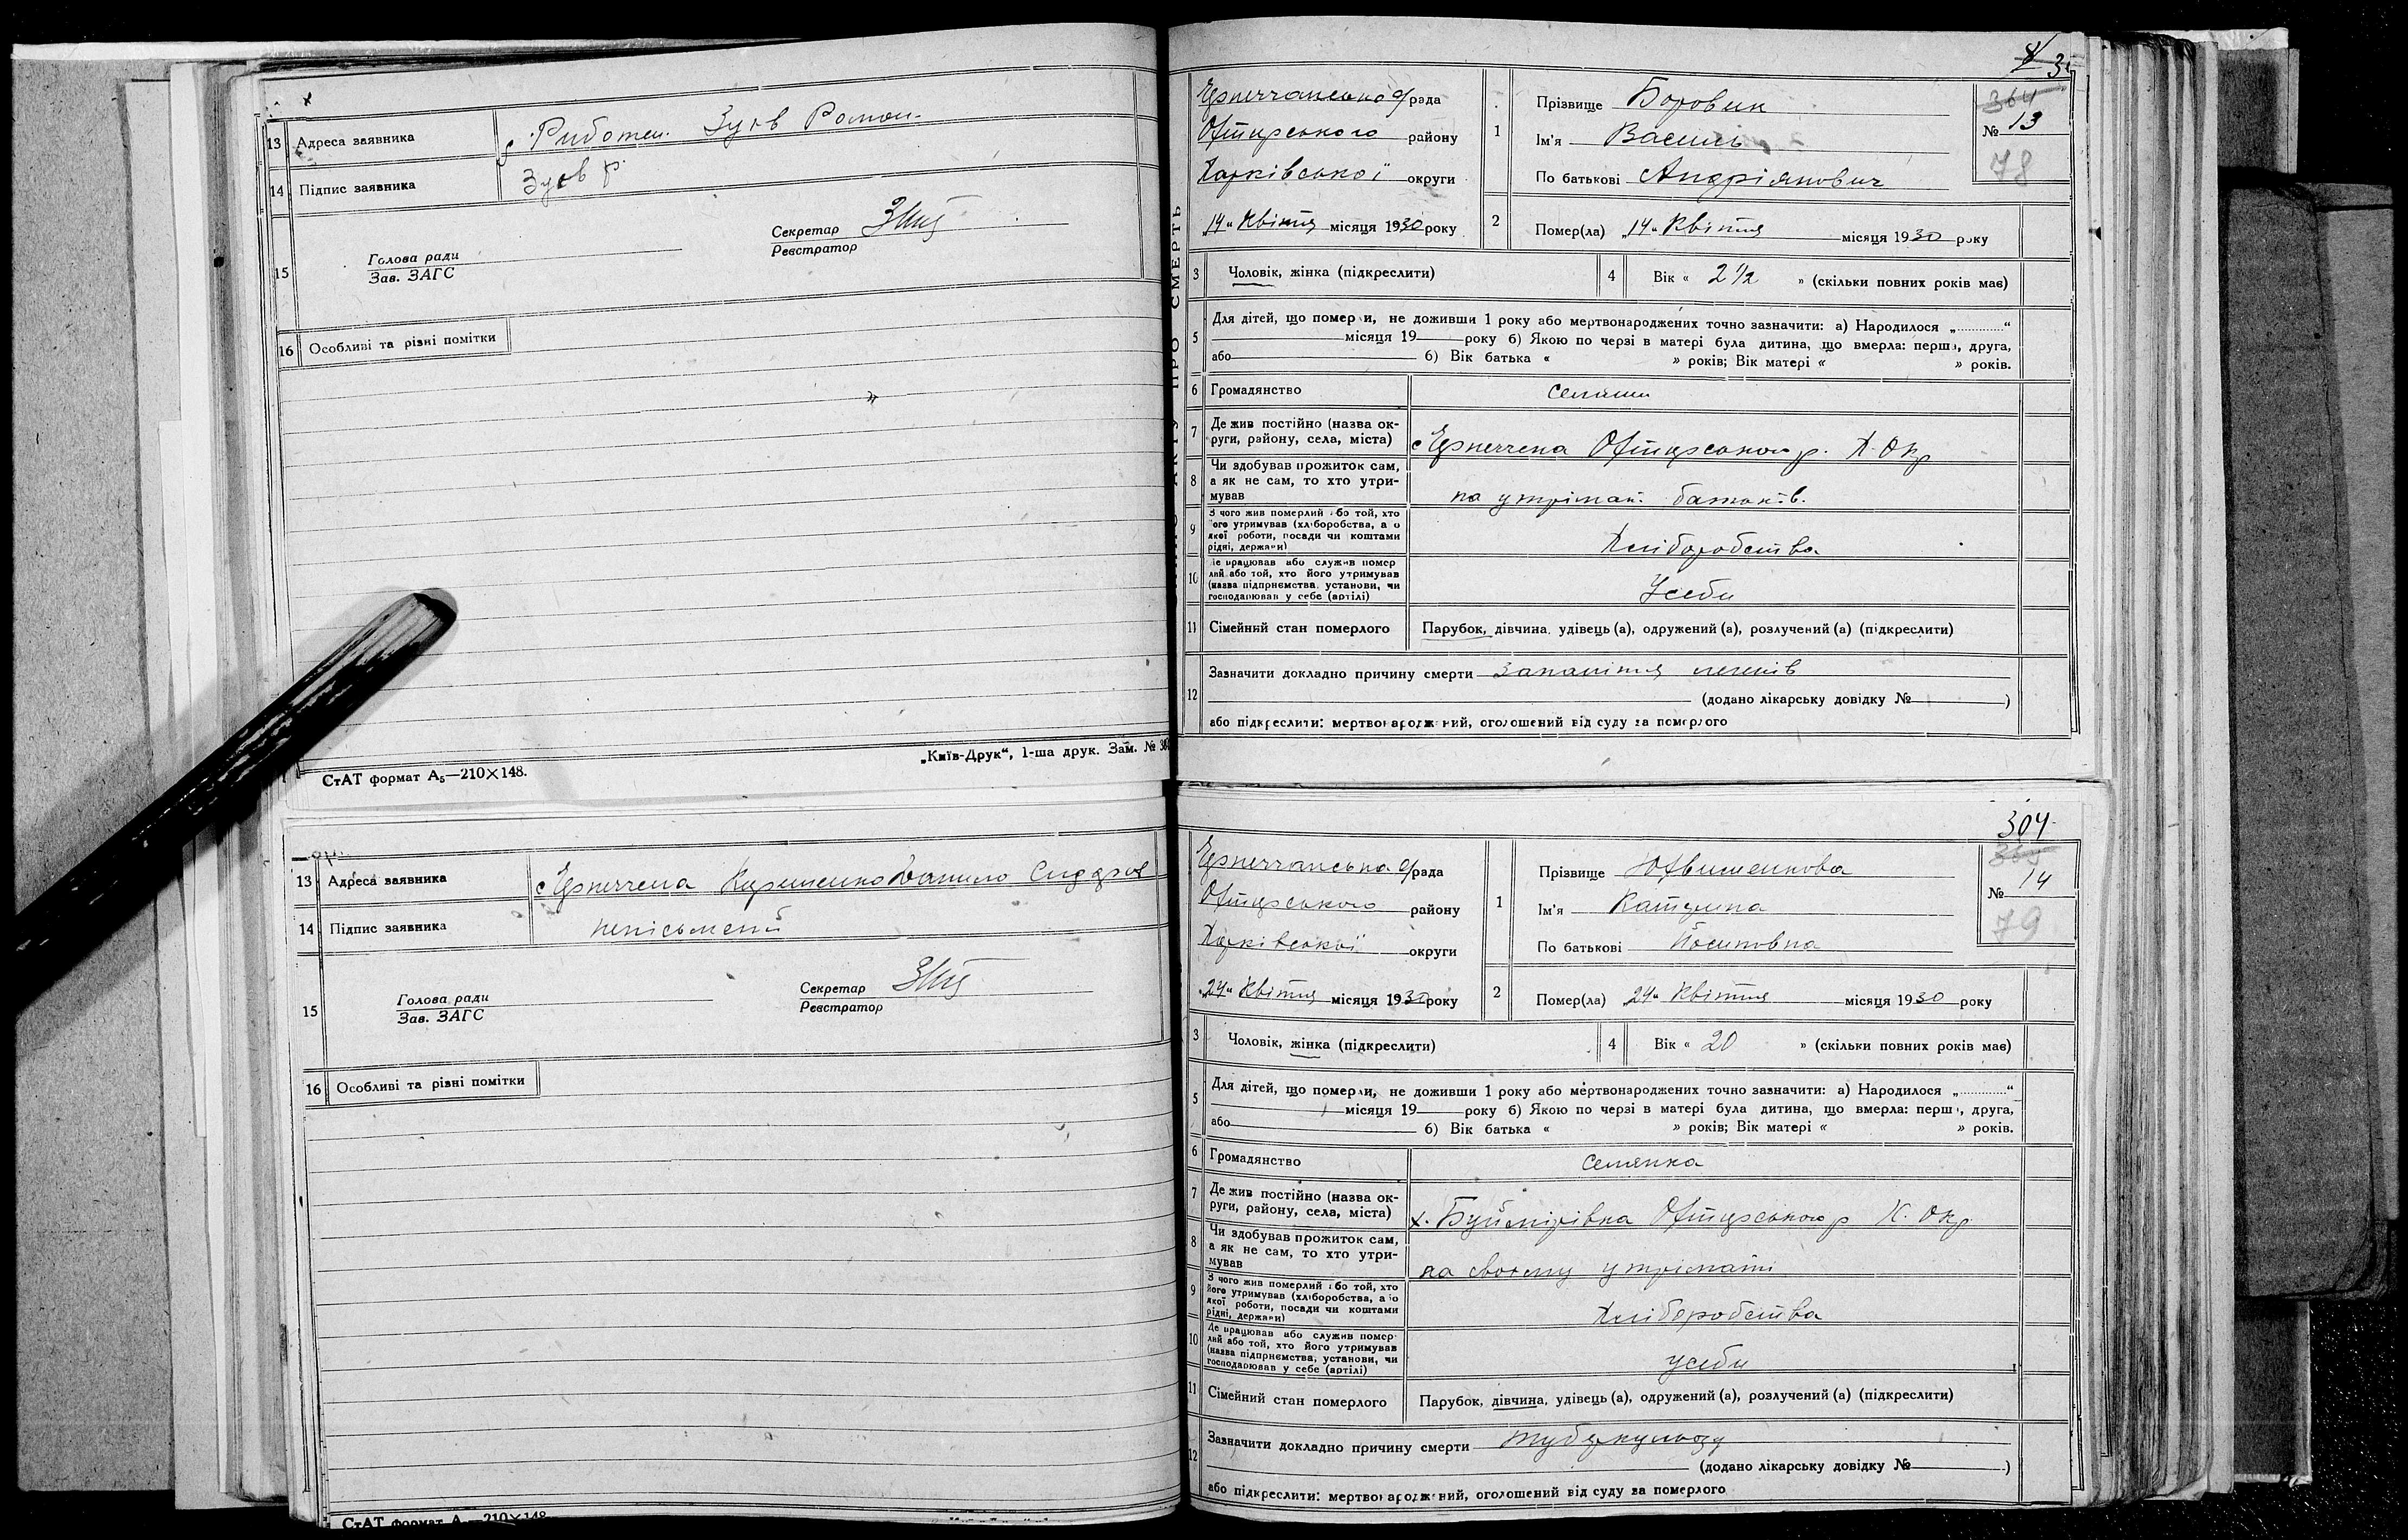 13 Адреса заявника Риботен. Зуєв Роман.
14 Підпис заявника Зуєв Р.
15 Голова ради
Зав. ЗАГС
Секретар
Реєстратор
16 Особливі та різні помітки
СтАТ формат А₅—210×148.
„Київ-Друк“, 1-ша друк. Зам. №
13 Адреса заявника Данило
14 Підпис заявника непісьмений
15 Голова ради
Зав. ЗАГС
Секретар
Реєстратор
16 Особливі та різні помітки
СтАТ формат А₅—210×148.
с/рада
Охтирського району
Харківської округи
„14“ Квітня місяця 1930 року
1 Прізвище Боровик
Ім'я Василь
По батькові Андріянович
364
№ 13
78
2 Помер(ла) „14“ Квітня місяця 1930 року
3 Чоловік, жінка (підкреслити)
4 Вік « 2 1/2 » (скільки повних років має)
5 Для дітей, що померли, не доживши 1 року або мертвонароджених точно зазначити: а) Народилося „............“
місяця 19 року б) Якою по черзі в матері була дитина, що вмерла: перша, друга,
або б) Вік батька « » років; Вік матері « » років.
6 Громадянство селянин
7 Де жив постійно (назва ок-
руги, району, села, міста) Охтирського р. Х. Окр
8 Чи здобував прожиток сам,
а як не сам, то хто утри-
мував на утріман. батьків.
9 З чого жив померлий або той, хто
його утримував (хліборобства, або
якої роботи, посади чи коштами
рідні, держави) Хліборобства
10 Де працював або служив помер
лий або той, хто його утримував
(назва підприємства, установи, чи
господарював у себе (артілі) Усебе
11 Сімейний стан померлого Парубок, дівчина, удівець (а), одружений (а), розлучений (а) (підкреслити)
12 Зазначити докладно причину смерти Запаління легенів
(додано лікарську довідку № )
або підкреслити: мертвонароджений, оголошений від суду за померлого
304
с/рада
Охтирського району
Харківської округи
„24“ Квітня місяця 1930 року
1 Прізвище
Ім'я Катерина
По батькові Йосиповна
№ 14
79
2 Помер(ла) „24“ Квітня місяця 1930 року
3 Чоловік, жінка (підкреслити)
4 Вік « 20 » (скільки повних років має)
5 Для дітей, що померли, не доживши 1 року або мертвонароджених точно зазначити: а) Народилося „............“
місяця 19 року б) Якою по черзі в матері була дитина, що вмерла: перша, друга,
або б) Вік батька « » років; Вік матері « » років.
6 Громадянство селянка
7 Де жив постійно (назва ок-
руги, району, села, міста) х. Буймірівка Охтирського р Х. Окр.
8 Чи здобував прожиток сам,
а як не сам, то хто утри-
мував на своєму утріманні
9 З чого жив померлий або той, хто
його утримував (хліборобства, або
якої роботи, посади чи коштами
рідні, держави) Хліборобства
10 Де працював або служив помер
лий або той, хто його утримував
(назва підприємства, установи, чи
господарював у себе (артілі) усебе
11 Сімейний стан померлого Парубок, дівчина, удівець (а), одружений (а), розлучений (а) (підкреслити)
12 Зазначити докладно причину смерти туберкульозу
(додано лікарську довідку № )
або підкреслити: мертвонароджений, оголошений від суду за померлого